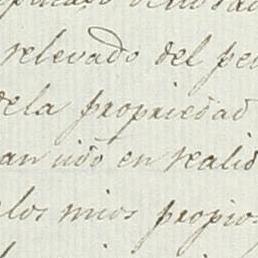 relevado del pe
dela propriedad
an sido en realid
los mios propios